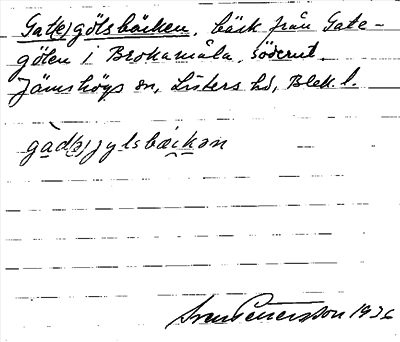 Gat(e)gölsbäcken, bäck från Gate-
gölen i Brokamåla, söderut.
Jämshögs sn, Listers hd, Blek. l.
gàd(ə)jylsbäckən
Sven Pettersson 1936